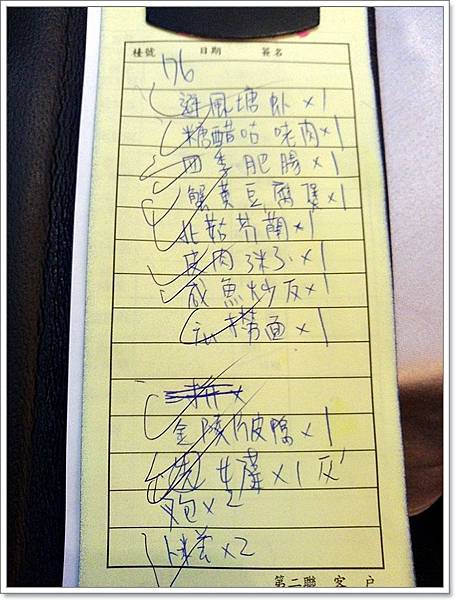 檯號 日期 簽名
176
避風塘虾×1
糖醋咕咾肉×1
四季肥腸×1
蟹黄豆腐煲×1
北菇芥蘭×1
皮肉×1
咸魚炒反×1
撈面×1
金陵片皮鴨×1
生薩×1
包×2
卜糕×2
第二聯 客戶